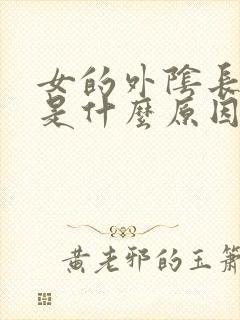 女的外陰長
是什麼原因
黃老邪的玉簫